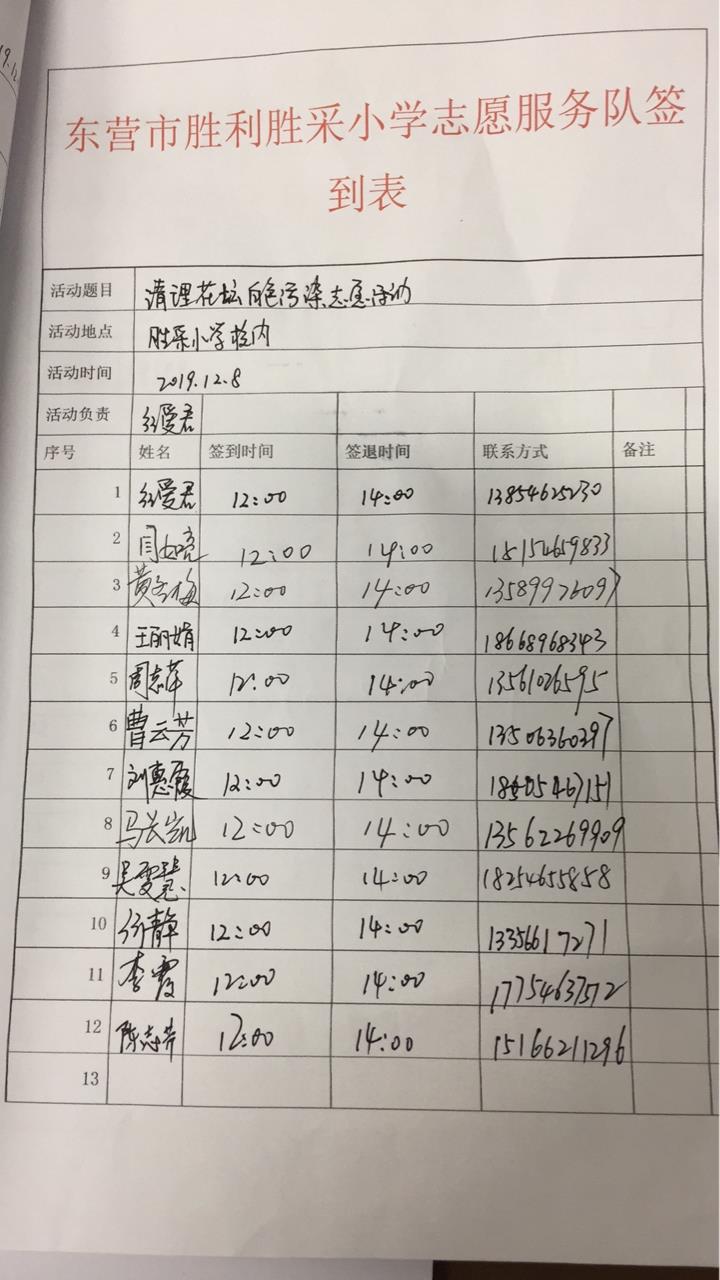 东营市胜利胜采小学志愿服务队签
到表
活动题目 清理花坛白色污染志愿活动
活动地点 胜采小学校内
活动时间 2019.12.8
活动负责 爱君
序号 姓名 签到时间 签退时间 联系方式 备注
1 爱君 12:00 14:00 13854625230
2 12:00 14:00 15154659833
3 黄冬梅 12:00 14:00 13589972609
4 王丽娟 12:00 14:00 18668968343
5 周志萍 12:00 14:00 13561026595
6 曹云芳 12:00 14:00 13506360397
7 刘惠霞 12:00 14:00 18605467151
8 马长凯 12:00 14:00 13562269909
9 吴雯慧 12:00 14:00 18254655858
10 徐静 12:00 14:00 13356617271
11 李霞 12:00 14:00 17754637572
12 陈志芳 12:00 14:00 15166211296
13